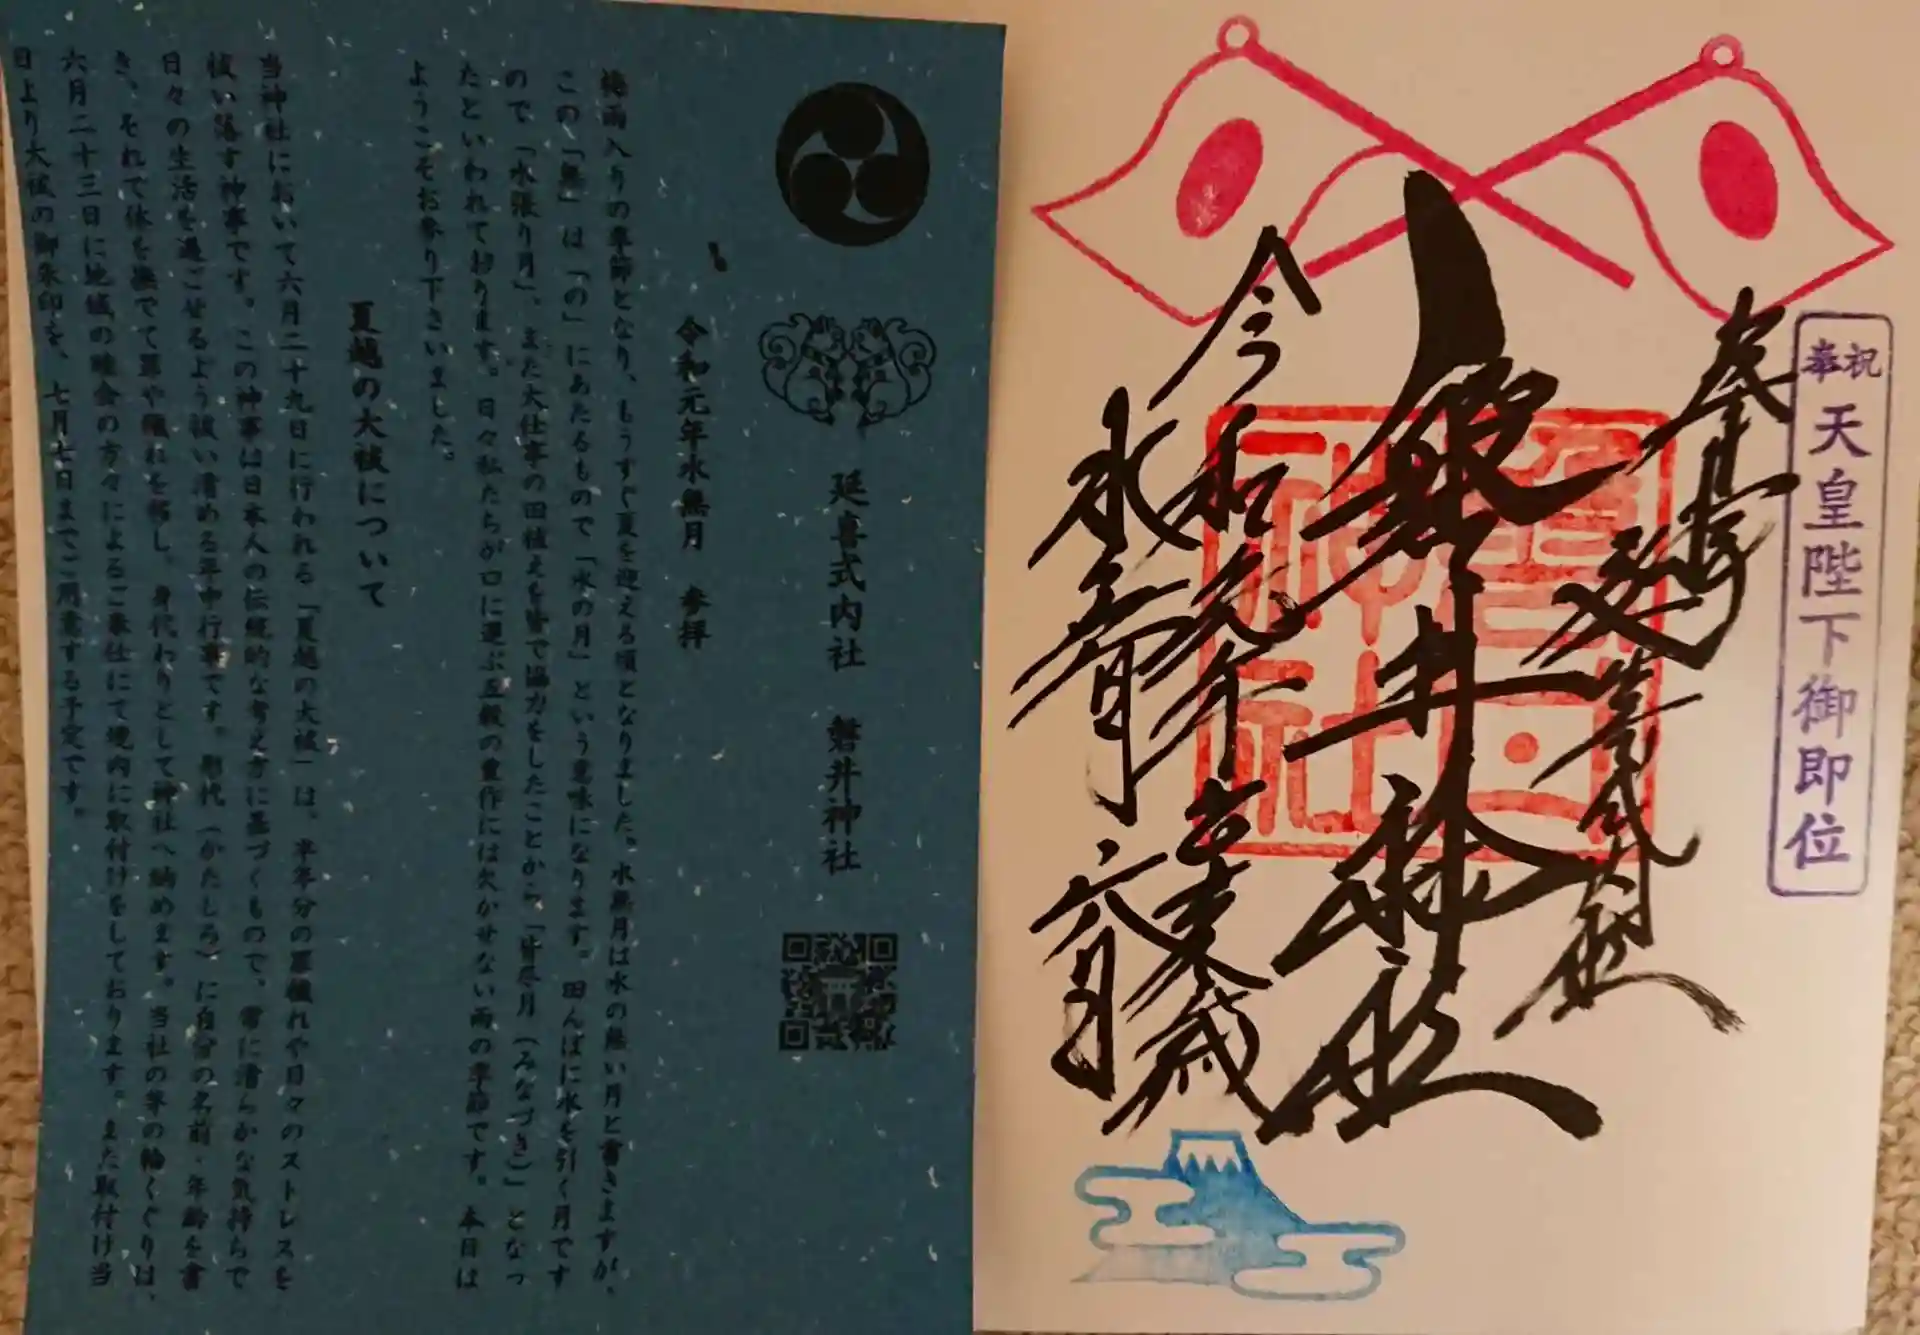 奉祝
天皇陛下御即位
奉拝
延喜式内社
磐井神社
令和元年
水無月
六月
延喜式内社 磐井神社
令和元年水無月 参拝
梅雨入りの季節となり、もうすぐ夏を迎える頃となりました。水無月は水の無い月と書きますが、
この「無」は「の」にあたるもので「水の月」という意味になります。田んぼに水を引く月です
ので「水張り月」、また大仕事の田植えを皆で協力をしたことから「皆尽月（みなづき）」となっ
たといわれております。日々私たちが口に運ぶ五穀の豊作には欠かせない雨の季節です。本日は
ようこそお参り下さいました。
夏越の大祓について
当神社において六月二十九日に行われる「夏越の大祓」は、半年分の罪穢れや日々のストレスを
祓い落す神事です。この神事は日本人の伝統的な考え方に基づくもので、常に清らかな気持ちで
日々の生活を過ごせるよう祓い清める年中行事です。形代（かたしろ）に自分の名前・年齢を書
き、それで体を撫でて罪や穢れを移し、身代わりとして神社へ納めます。当社の茅の輪くぐりは、
六月二十三日に地域の睦会の方々によるご奉仕にて境内に取付けをしております。また取付け当
日より大祓の御朱印を、七月七日までご用意する予定です。